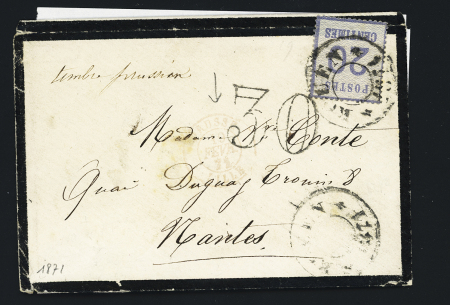 POSTES
20
CENTIMES
timbre prussien
30
Madame Vve Conte
Quai Duguay Trouin 8
Nantes
1871